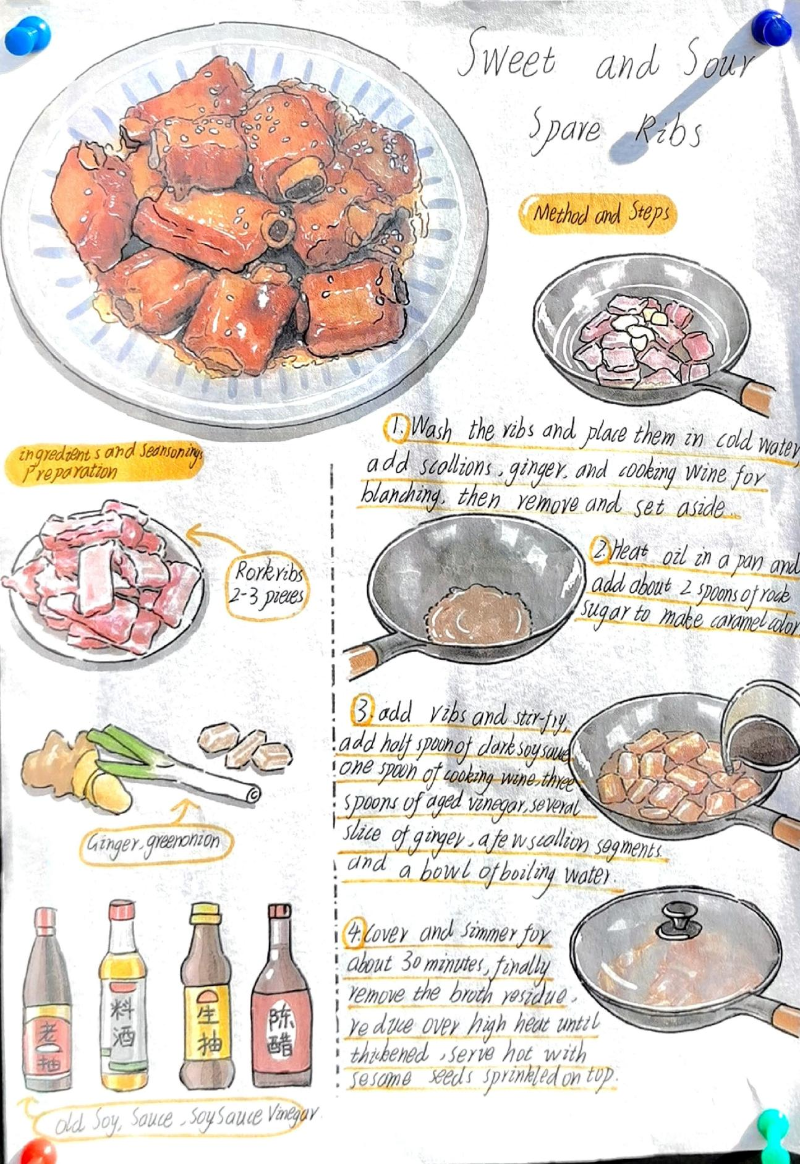 Sweet and Sour
Spare Ribs
Method and Steps
1. Wash the ribs and place them in cold water,
add scallions, ginger, and cooking wine for
blanching, then remove and set aside.
2. Heat oil in a pan and
add about 2 spoons of rock
sugar to make caramel color
3. add ribs and stir-fry,
add half spoon of dark soy sauce
one spoon of cooking wine, three
spoons of aged vinegar, several
slice of ginger, a few scallion segments
and a bowl of boiling water.
4. Cover and simmer for
about 30 minutes, finally
remove the broth residue,
reduce over high heat until
thickened, serve hot with
sesame seeds sprinkled on top.
ingredients and seansonings
preparation
Rorkribs
2-3 pieces
Ginger, greenonion
老抽
料酒
生抽
陈醋
old Soy, Sauce, Soy Sauce Vinegar